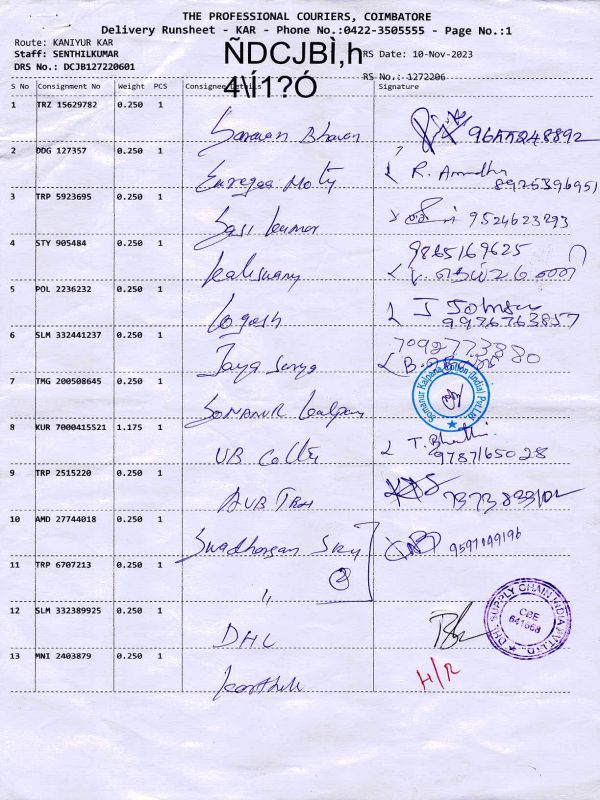 THE PROFESSIONAL COURIERS, COIMBATORE
Delivery Runsheet - KAR - Phone No.:0422-3505555 - Page No.:1
Route: KANIYUR KAR
Staff: SENTHILKUMAR RS Date: 10-Nov-2023
DRS No.: DCJB127220601
ÑDCJBÌ,h
4\Í1?Ó
RS No.: 1272206
S No Consignment No Weight PCS Consignee Details Signature
1 TRZ 15629782 0.250 1
Saravan Bhavan
2 DDG 127357 0.250 1
R.
8925396951
3 TRP 5923695 0.250 1
Sasi kumar 9524623293
4 STY 905484 0.250 1
Kaliswamy 9865169625
5 POL 2236232 0.250 1
Logesh J
9976763857
6 SLM 332441237 0.250 1
Jaya Surya 7092773880
7 TMG 200508645 0.250 1
SOMANUR kalpana
Somanur Kalpana Cotton (India) Pvt Ltd
8 KUR 7000415521 1.175 1
UB T. Bharathi
9787165028
9 TRP 2515220 0.250 1
AVB
10 AMD 27744018 0.250 1
9597099196
11 TRP 6707213 0.250 1
2
"
12 SLM 332389925 0.250 1
DHL
DHL SUPPLY CHAIN INDIA PVT LTD
CBE
641668
13 MNI 2403879 0.250 1
Karthik H/R